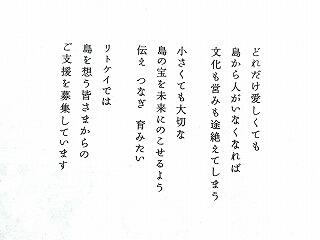 どれだけ愛しくても
島から人がいなくなれば
文化も営みも途絶えてしまう
小さくても大切な
島の宝を未来にのこせるよう
伝え つなぎ 育みたい
リトケイでは
島を想う皆さまからの
ご支援を募集しています